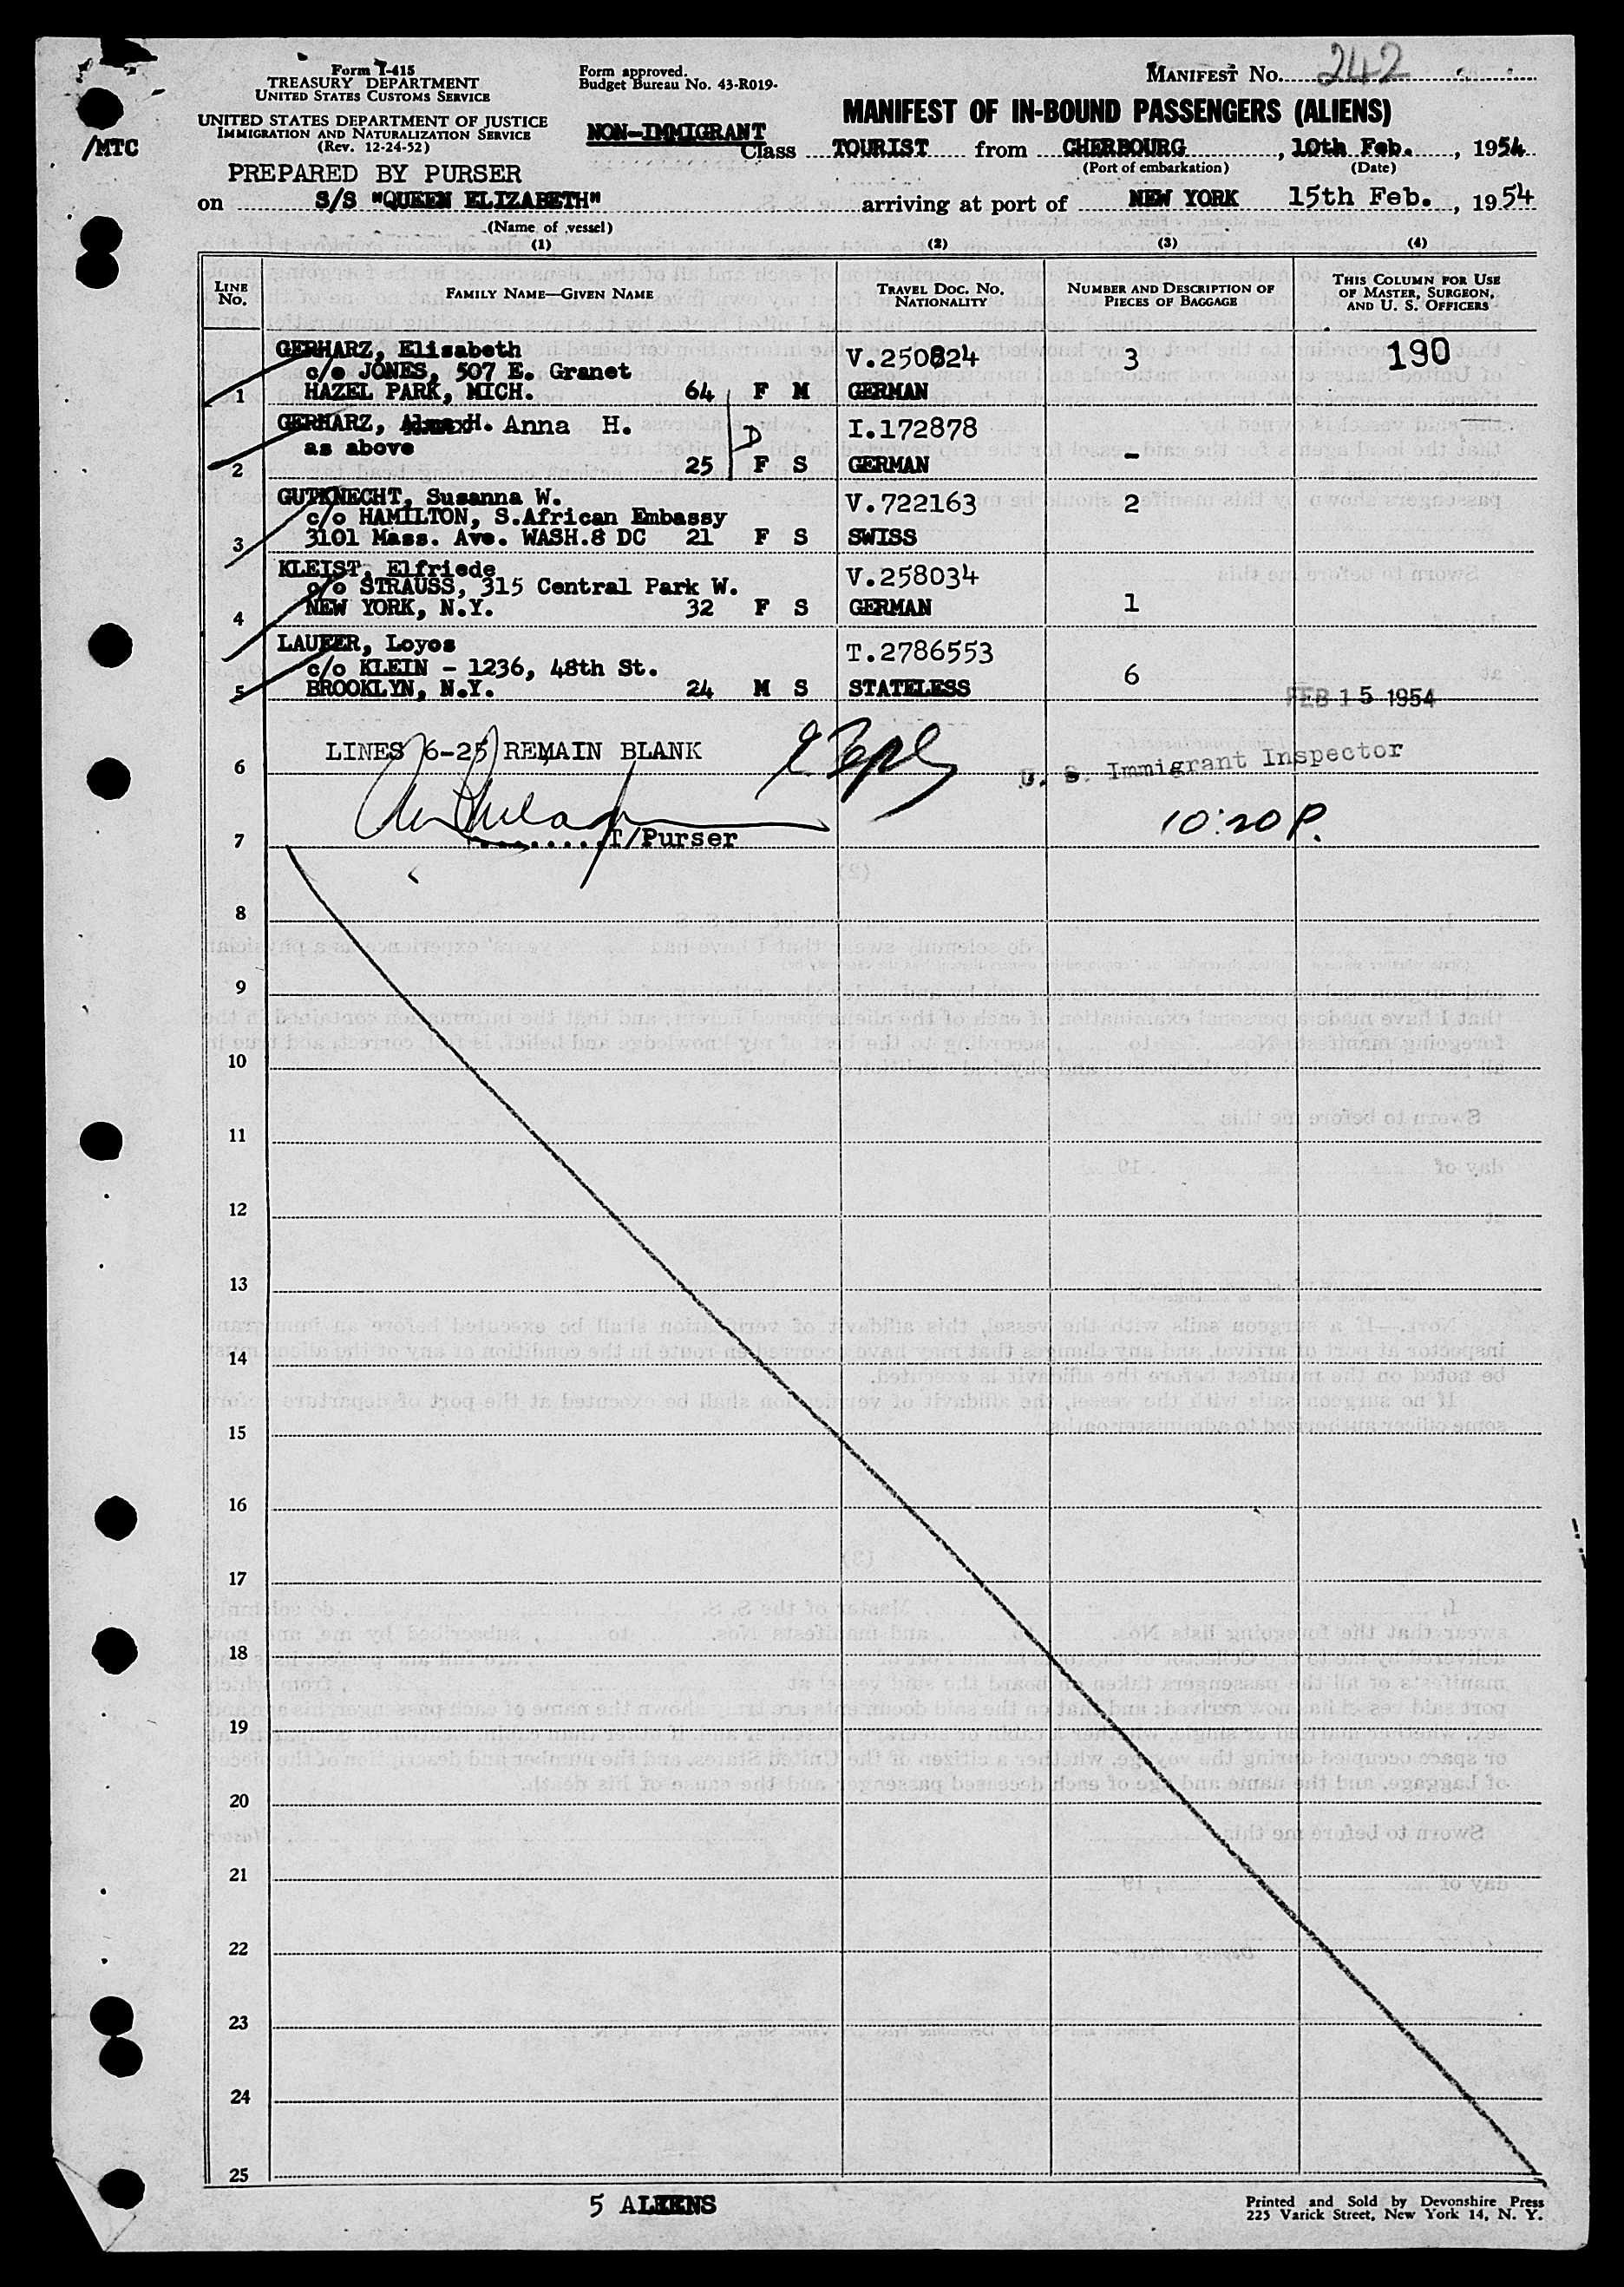 Form I-415
TREASURY DEPARTMENT
UNITED STATES CUSTOMS SERVICE
UNITED STATES DEPARTMENT OF JUSTICE
IMMIGRATION AND NATURALIZATION SERVICE
(Rev. 12-24-52)
/MTC
Form approved.
Budget Bureau No. 43-R019-
MANIFEST No. 242
MANIFEST OF IN-BOUND PASSENGERS (ALIENS)
NON-IMMIGRANT
Class TOURIST from CHERBOURG, 10th Feb., 1954
(Port of embarkation) (Date)
PREPARED BY PURSER
on S/S "QUEEN ELIZABETH" arriving at port of NEW YORK 15th Feb., 1954
(Name of vessel)
(1) (2) (3) (4)
LINE No. FAMILY NAME—GIVEN NAME TRAVEL DOC. No. NATIONALITY NUMBER AND DESCRIPTION OF PIECES OF BAGGAGE THIS COLUMN FOR USE OF MASTER, SURGEON, AND U. S. OFFICERS
GERHARZ, Elisabeth V.250824 3 190
c/o JONES, 507 E. Granet
1 HAZEL PARK, MICH. 64 F M GERMAN
GERHARZ, Anna H. I.172878
as above D
2 25 F S GERMAN -
GUTKNECHT, Susanna W. V.722163 2
c/o HAMILTON, S.African Embassy
3 3101 Mass. Ave. WASH.8 DC 21 F S SWISS
KLEIST, Elfriede V.258034
c/o STRAUSS, 315 Central Park W.
4 NEW YORK, N.Y. 32 F S GERMAN 1
LAUFER, Loyos T.2786553
c/o KLEIN - 1236, 48th St. 6
5 BROOKLYN, N.Y. 24 M S STATELESS
FEB 15 1954
LINES 6-25 REMAIN BLANK
U. S. Immigrant Inspector
6
10:20 P.
T/Purser
7
8
9
10
11
12
13
14
15
16
17
18
19
20
21
22
23
24
25
5 ALIENS
Printed and Sold by Devonshire Press
225 Varick Street, New York 14, N. Y.